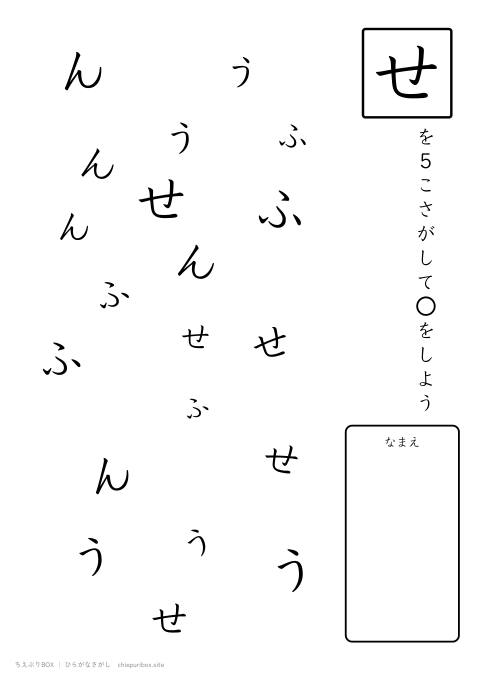 せ
を5こさがして〇をしよう
なまえ
ん
う
う
ふ
ん
せ
ふ
ん
ん
ふ
せ
せ
ふ
ふ
せ
ん
う
う
う
せ
ちえぷりBOX | ひらがなさがし chiepuribox.site